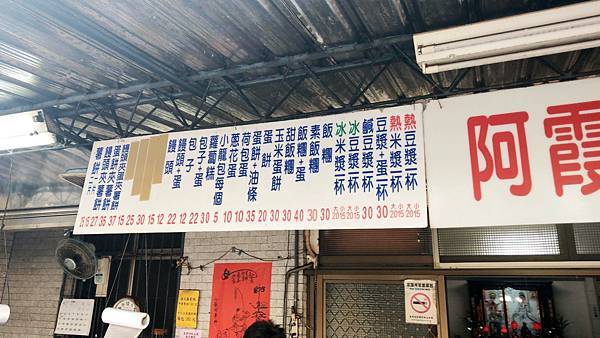 熱豆漿一杯 大小2015
熱米漿一杯 大小2015
豆漿+蛋一杯 30
鹹豆漿一杯 30
冰豆漿一杯 大小2015
冰米漿一杯 大小2015
飯糰 30
素飯糰 30
飯糰+蛋 40
甜飯糰 30
玉米蛋餅 30
蛋餅 20
蛋餅+油條 35
荷包蛋 10
蔥花蛋 10
小籠包每個 5
蘿蔔糕 30
包子+蛋 22
包子 12
饅頭+蛋 22
饅頭 12
15
25
30
15
饅頭夾蛋夾薯餅 37
蛋餅夾薯餅
饅頭夾薯餅 27
薯餅
阿霞